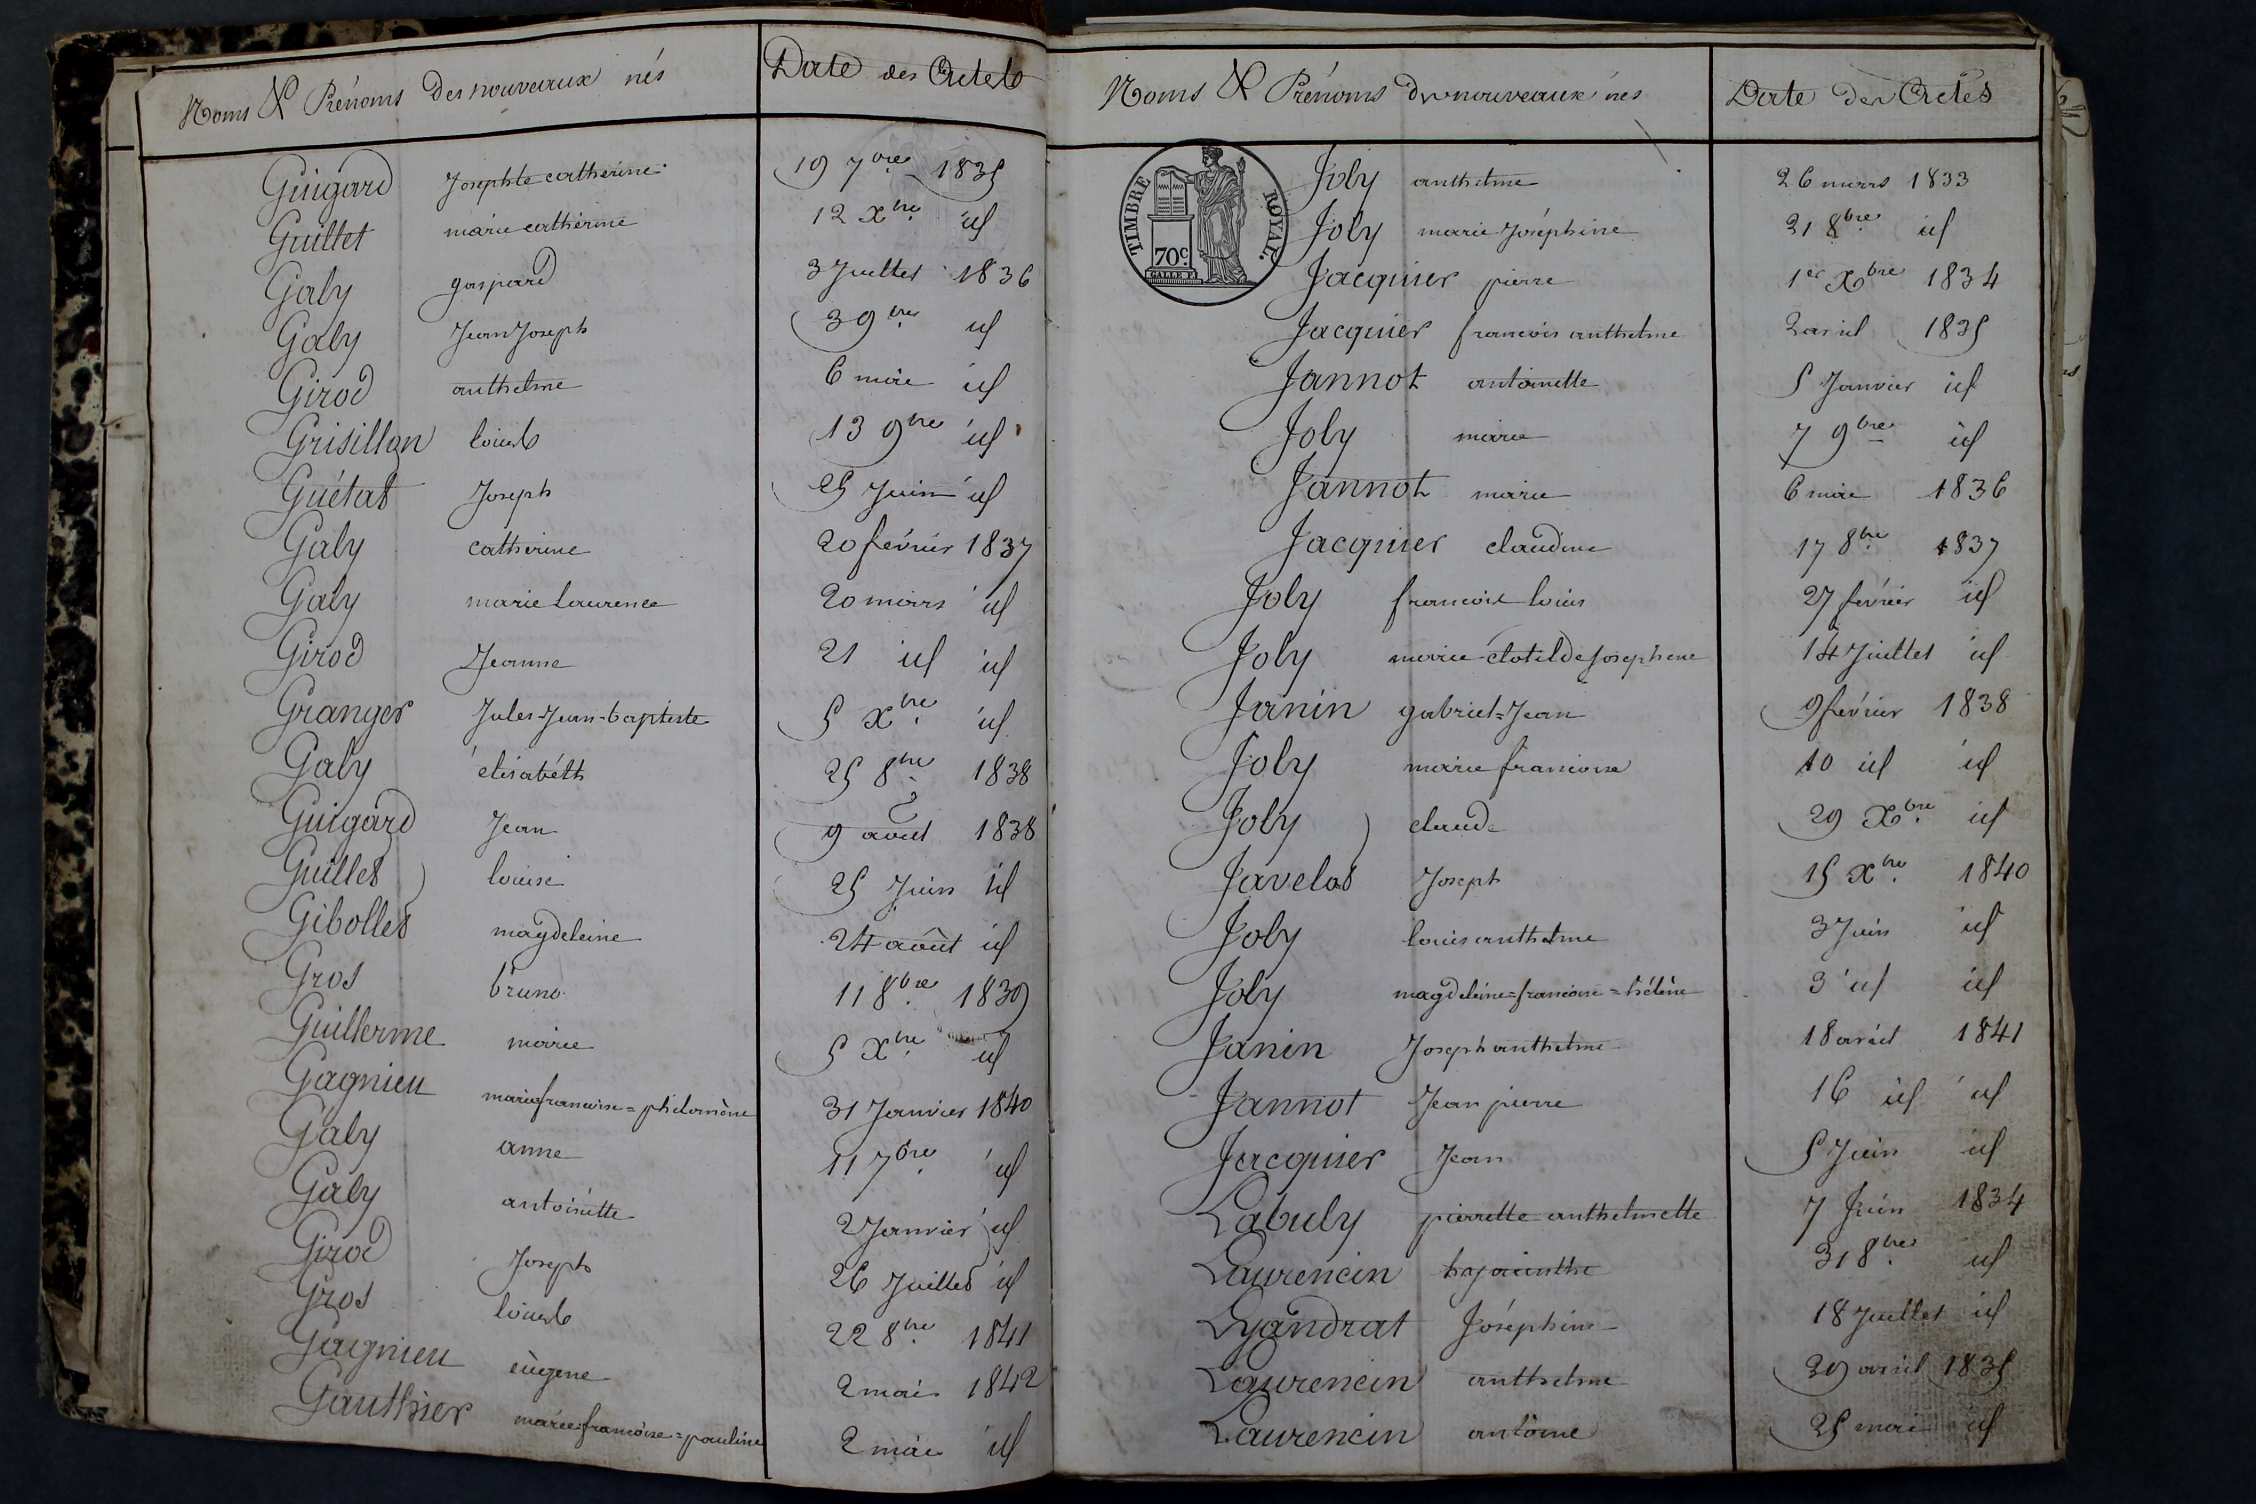 Noms & Prénoms des nouveaux nés Date des Actes
Guigard Josephte catherine 19 7bre 1835
Guillet marie catherine 12 Xbre id
Galy gaspard 3 Juillet 1836
Galy Jean Joseph 3 9bre id
Girod anthelme 6 mai id
Grisillon louis 13 9bre id
Guétat Joseph 25 Juin id
Galy catherine 20 février 1837
Galy marie Laurence 20 mars id
Girod Jeanne 21 id id
Granger Jules-Jean-baptiste 5 Xbre id
Galy élisabéth 25 8bre 1838
Guigard Jean 9 août 1838
Guillet louise 25 Juin id
Gibollet magdeleine 24 août id
Gros bruno 11 8bre 1839
Guillerme marie 5 Xbre id
Gagnieu marie francoise=philomène 31 Janvier 1840
Galy anne 11 7bre id
Galy antoinette 2 Janvier id
Girod Joseph 26 Juillet id
Gros louis 22 8bre 1841
Gagnieu eùgene 2 mai 1842
Gauthier marie francoise=pauline 2 mai id
Noms & Prénoms des nouveaux nés Date des Actes
TIMBRE ROYAL.
70c.
Joly anthelme 26 mars 1833
Joly marie Joséphine 21 8bre id
Jacquier pierre 1er Xbre 1834
Jacquier francois anthelme 2 avril 1835
Jannot antoinette 5 Janvier id
Joly marie 7 9bre id
Jannot marie 6 mai 1836
Jacquier claudine 17 8bre 1837
Joly francois louis 27 février id
Joly marie clotilde josephine 14 Juillet id
Janin gabriel=Jean 9 février 1838
Joly marie francoise 10 id id
Joly claude 29 Xbre id
Javelot Joseph 15 Xbre 1840
Joly louis anthelme 3 Juin id
Joly magdeleine=francoise=hélène 3 id id
Janin Joseph anthelme 18 avril 1841
Jannot Jean pierre 16 id id
Jacquier Jean 5 Juin id
Labuly pierrette anthelmette 7 Juin 1834
Laurencin hyacinthe 31 8bre id
Lyandrat Joséphine 18 Juillet id
Laurencin anthelme 29 avril 1835
Laurencin antoine 25 mai id